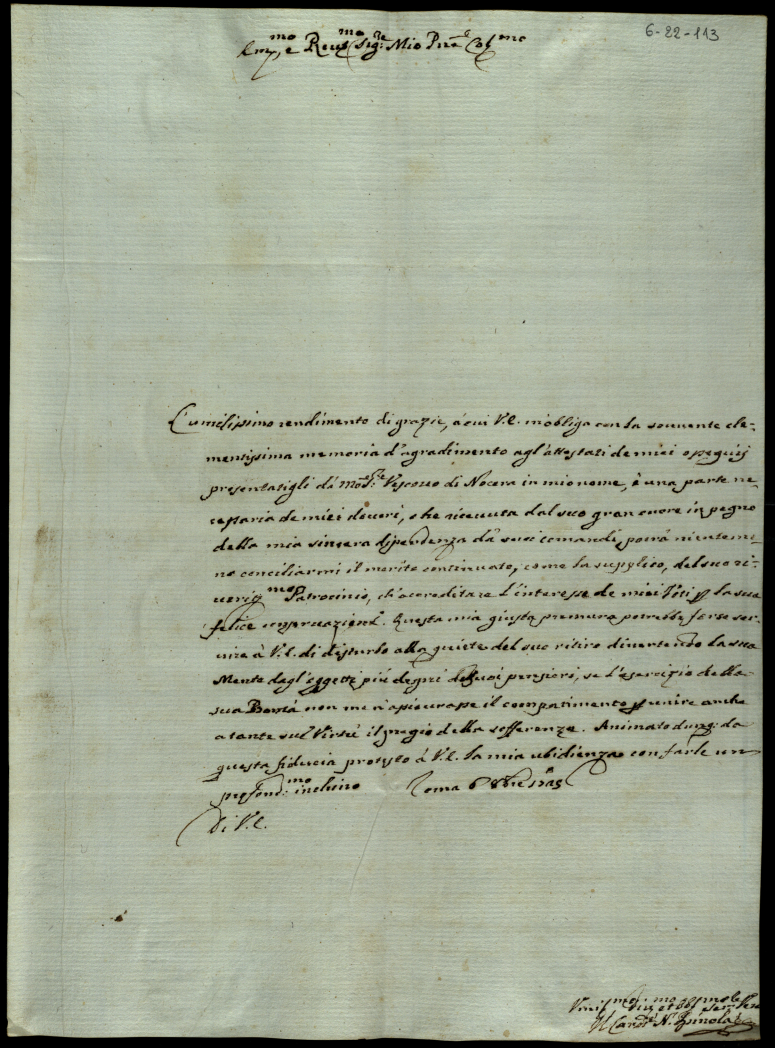 6-22-113
Em:mo, e Reu:mo Sig:re Mio Pne Col:mo
L'umilissimo rendimento di grazie, à cui V.E. m'obliga con la souuente cle-
mentissima memoria d'agradimento agl'attestati de miei ossequij
presentatigli da Mons:re Vescouo di Nocera in mio nome, è una parte ne-
cessaria de miei doueri, che riceuuta dal suo gran cuore in pegno
della mia sincera dipendenza da suoi comandi, potrà nientemi-
no conciliarmi il merito continuato, come la supplico, del suo ri-
uerit:mo Patrocinio, ch'accreditare l'interesse de miei Voti p la sua
felice conseruazione. Questa mia giusta premura potrebbe forse ser-
uire à V.E. di disturbo alla quiete del suo ritiro diuertendo la sua
Mente dagl'oggetti più degni de suoi pensieri, se l'esercizio della
sua Bontà non me n'assicurasse il compatimento p unire anche
a tante sue Virtù il pregio della sofferenza. Animato dunq: da
questa fiducia protesto à V.E. la mia ubidienza con farle un
profond:mo inchino Roma 6 8bre
Di V.E.
Il Card: N. Spinola